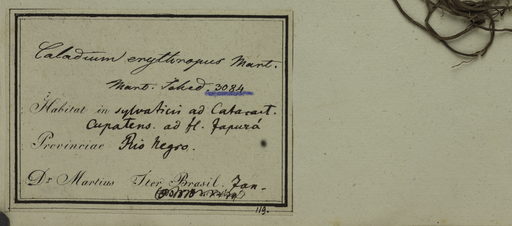 Caladium erythropus Mart.
Mart. Sched. 3084
Habitat in sylvaticis ad Cataract.
Cupatens. ad fl. Japurá
Provinciae Rio Negro.
Dr Martius Iter Brasil. Jan.
119.